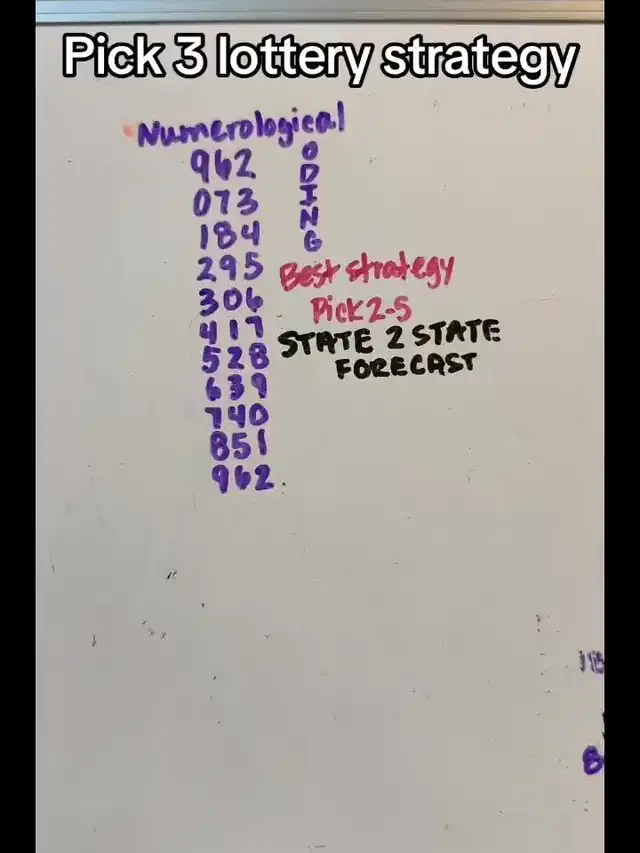 Pick 3 lottery strategy
Numerological
ODING
962
073
184
295
306
417
528
639
740
851
962
Best strategy
Pick 2-5
STATE 2 STATE
FORECAST
8